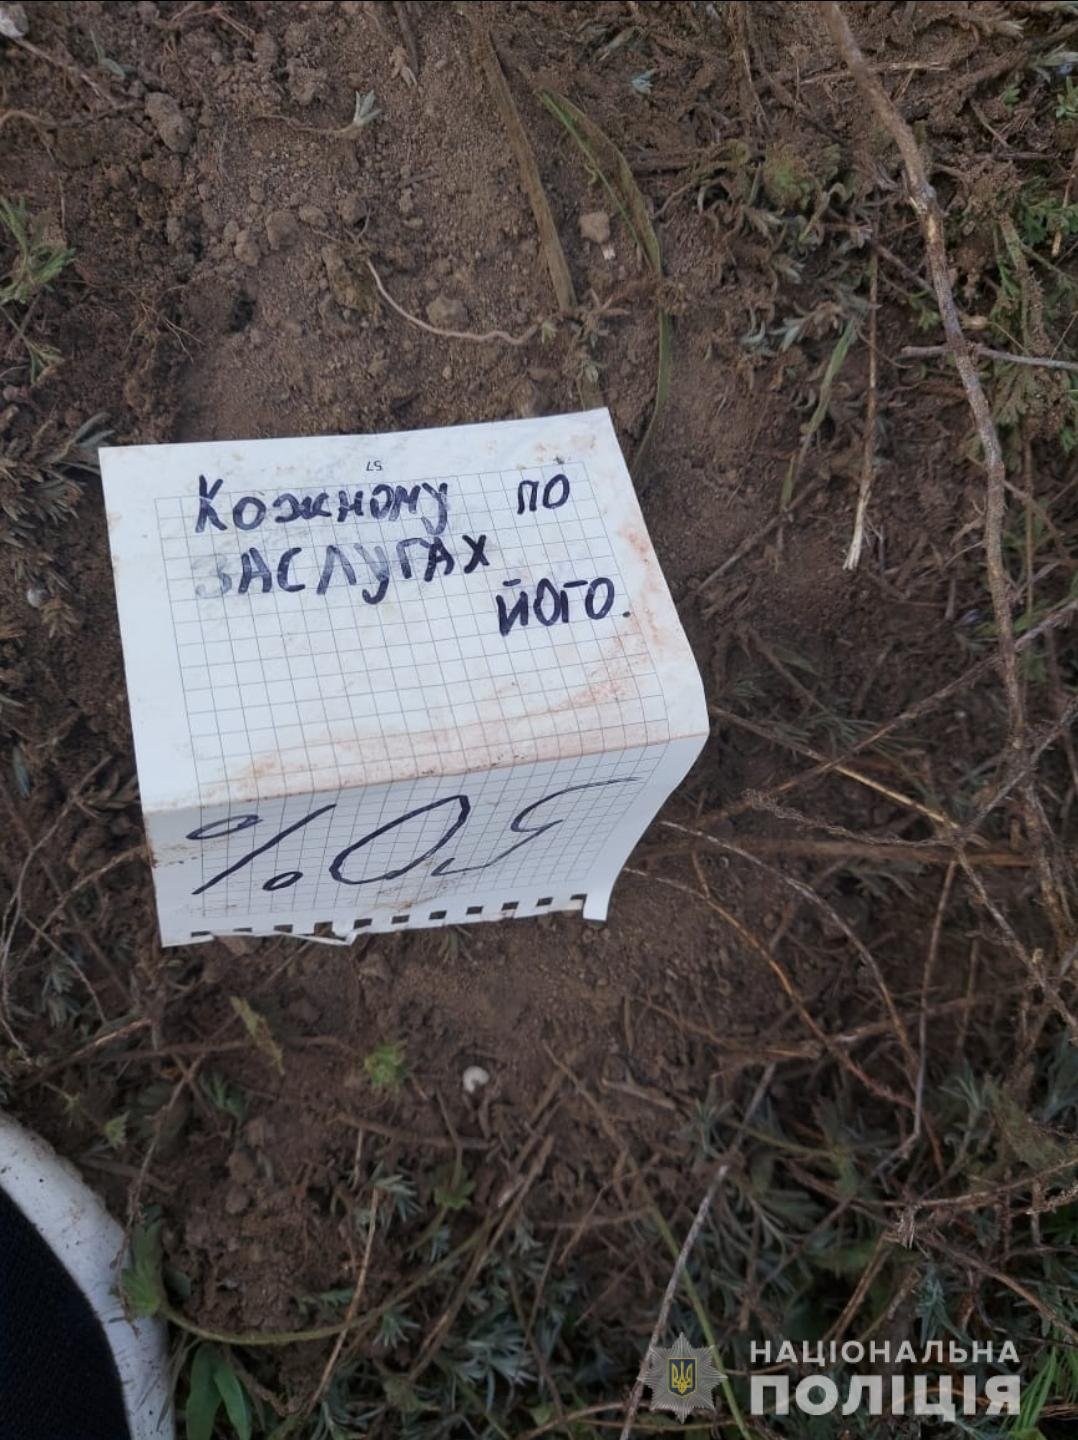 57
Кожному по
ЗАСЛУГАХ
його.
НАЦІОНАЛЬНА
ПОЛІЦІЯ